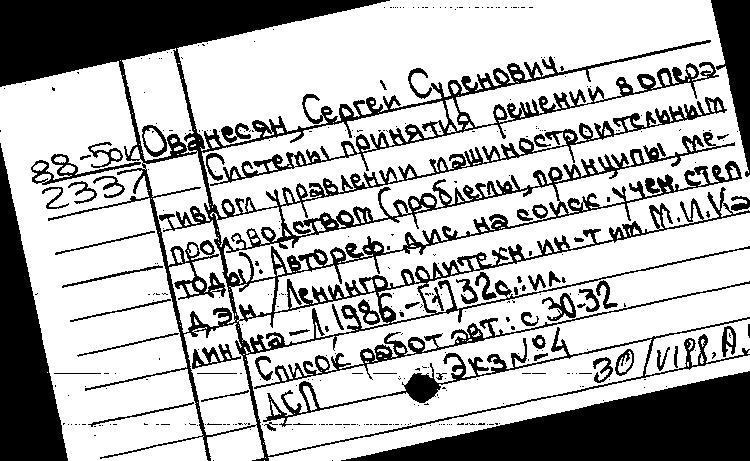 88-50к
2337
Ованесян, Сергей Суренович.
Системы принятия решений в опера-
тивном управлении машиностроительным
производством (проблемы, принципы, ме-
тоды): Автореф. дис. на соиск. учен. степ.
д.э.н. / Ленингр. политехн. ин-т им. М.И.Ка
линина – Л. 1986. – [1] 32с.: ил.
Список работ авт.: с 30-32.
ДСП Экз № 4
30/VI88.А.